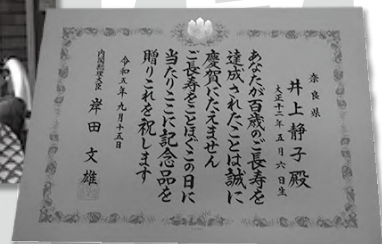 奈良県
井上静子殿
大正十二年五月六日生
あなたが百歳のご長寿を
達成されたことは誠に
慶賀にたえません
ご長寿をことほぐこの日に
当たりここに記念品を
贈りこれを祝します
令和五年九月十五日
内閣総理大臣 岸田文雄